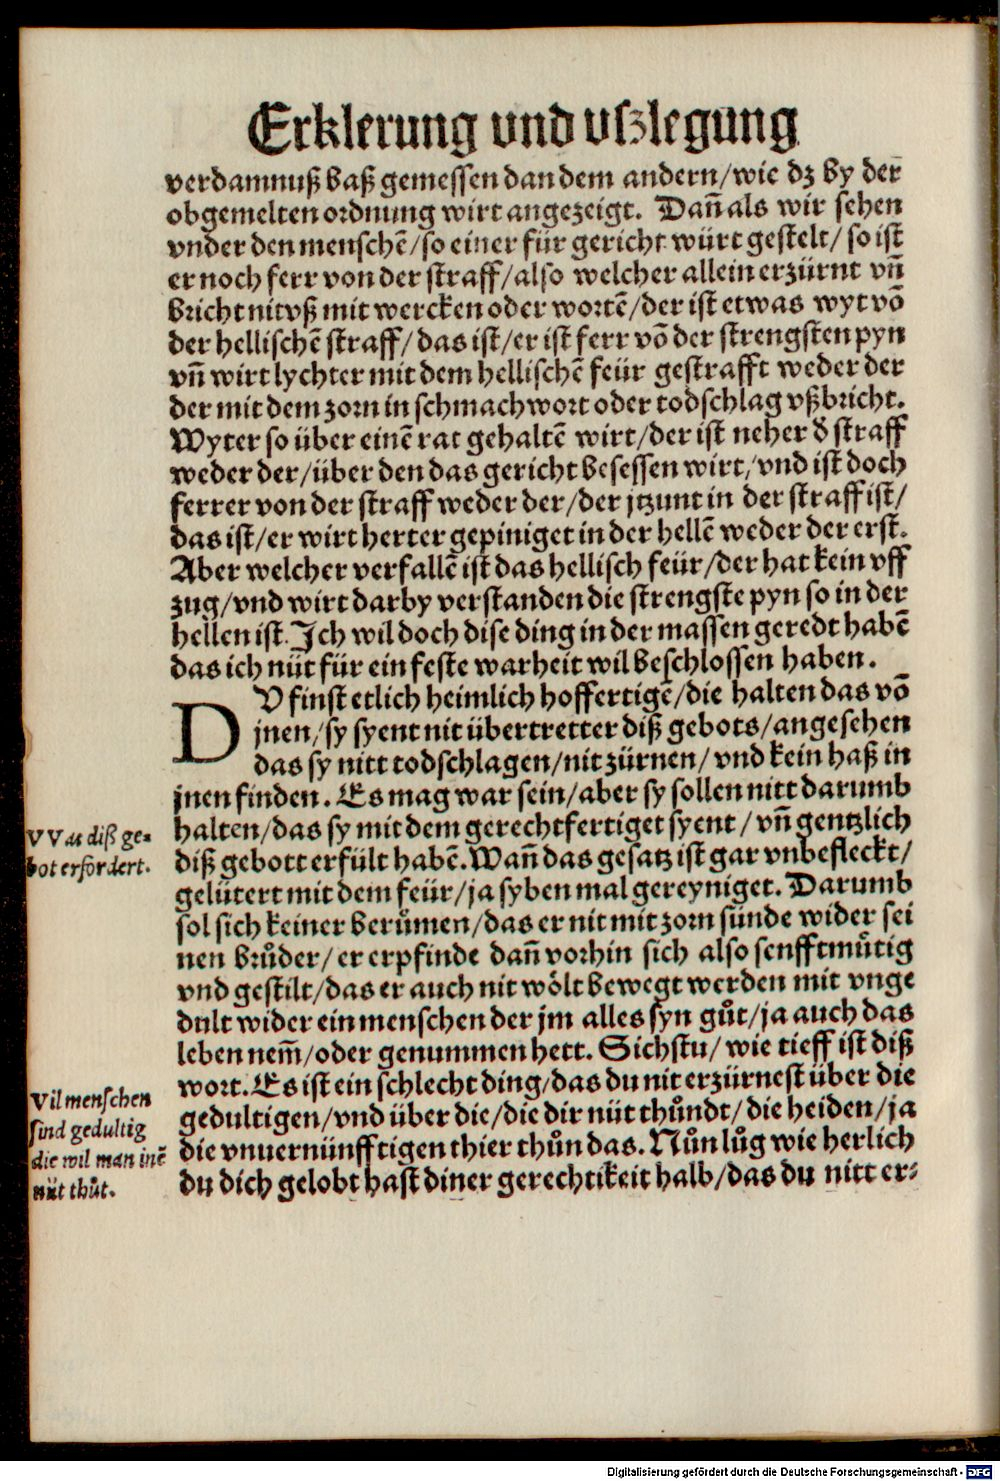 Erklerung vnd vſzlegung
verdamnuß baß gemeſſen dan dem andern/wie dz by der
obgemelten ordnung wirt angezeigt. Dañ als wir ſehen
vnder den menſchē/ſo einer für gericht würt geſtelt/ ſo iſt
er noch ferr von der ſtraff/alſo welcher allein erzürnt vñ
bricht nit vß mit wercken oder wortē/der iſt etwas wyt vō
der helliſchē ſtraff/ das iſt/er iſt ferr vō der ſtrengſten pyn
vñ wirt lychter mit dem helliſchē feür geſtrafft weder der
der mit dem zorn in ſchmachwort oder todſchlag vßbricht.
Wyter ſo über einē rat gehaltē wirt/der iſt neher d̕ ſtraff
weder der/über den das gericht beſeſſen wirt/vnd iſt doch
ferrer von der ſtraff weder der/der jtzunt in der ſtraff iſt/
das iſt/er wirt herter gepiniget in der hellē weder der erſt.
Aber welcher verfallē iſt das helliſch feür/der hat kein vff
zug/vnd wirt darby verſtanden die ſtrengſte pyn ſo in der
hellen iſt. Ich wil doch diſe ding in der maſſen geredt habē
das ich nüt für ein feſte warheit wil beſchloſſen haben.
DV finſt etlich heimlich hoffertigē/die halten das vō
jnen/ſy ſyent nit übertretter diß gebots/angeſehen
das ſy nitt todſchlagen/nit zürnen/ vnd kein haß in
jnen finden. Es mag war ſein/aber ſy ſollen nitt darumb
halten/das ſy mit dem gerechtfertiget ſyent/ vñ gentzlich
diß gebott erfült habē. Wañ das geſatz iſt gar vnbefleckt/
gelütert mit dem feür/ja ſyben mal gereyniget. Darumb
ſol ſich keiner berůmen/das er nit mit zorn ſünde wider ſei
nen brůder/ er erpfinde dañ vorhin ſich alſo ſenfftmůtig
vnd geſtilt/das er auch nit wölt bewegt werden mit vnge
dult wider ein menſchen der jm alles ſyn gůt/ja auch das
leben nem̃/oder genummen hett. Sichſtu/ wie tieff iſt diß
wort. Es iſt ein ſchlecht ding/das du nit erzürneſt über die
gedultigen/vnd über die/die dir nüt thůndt/die heiden/ja
die vnuernünfftigen thier thůn das. Nůn lůg wie herlich
du dich gelobt haſt diner gerechtikeit halb/das du nitt er⸗
VVas diß ge-
bot erfordert.
Vil menſchen
ſind gedultig
die wil man inē
nüt thůt.
Digitalisierung gefördert durch die Deutsche Forschungsgemeinschaft - DFG